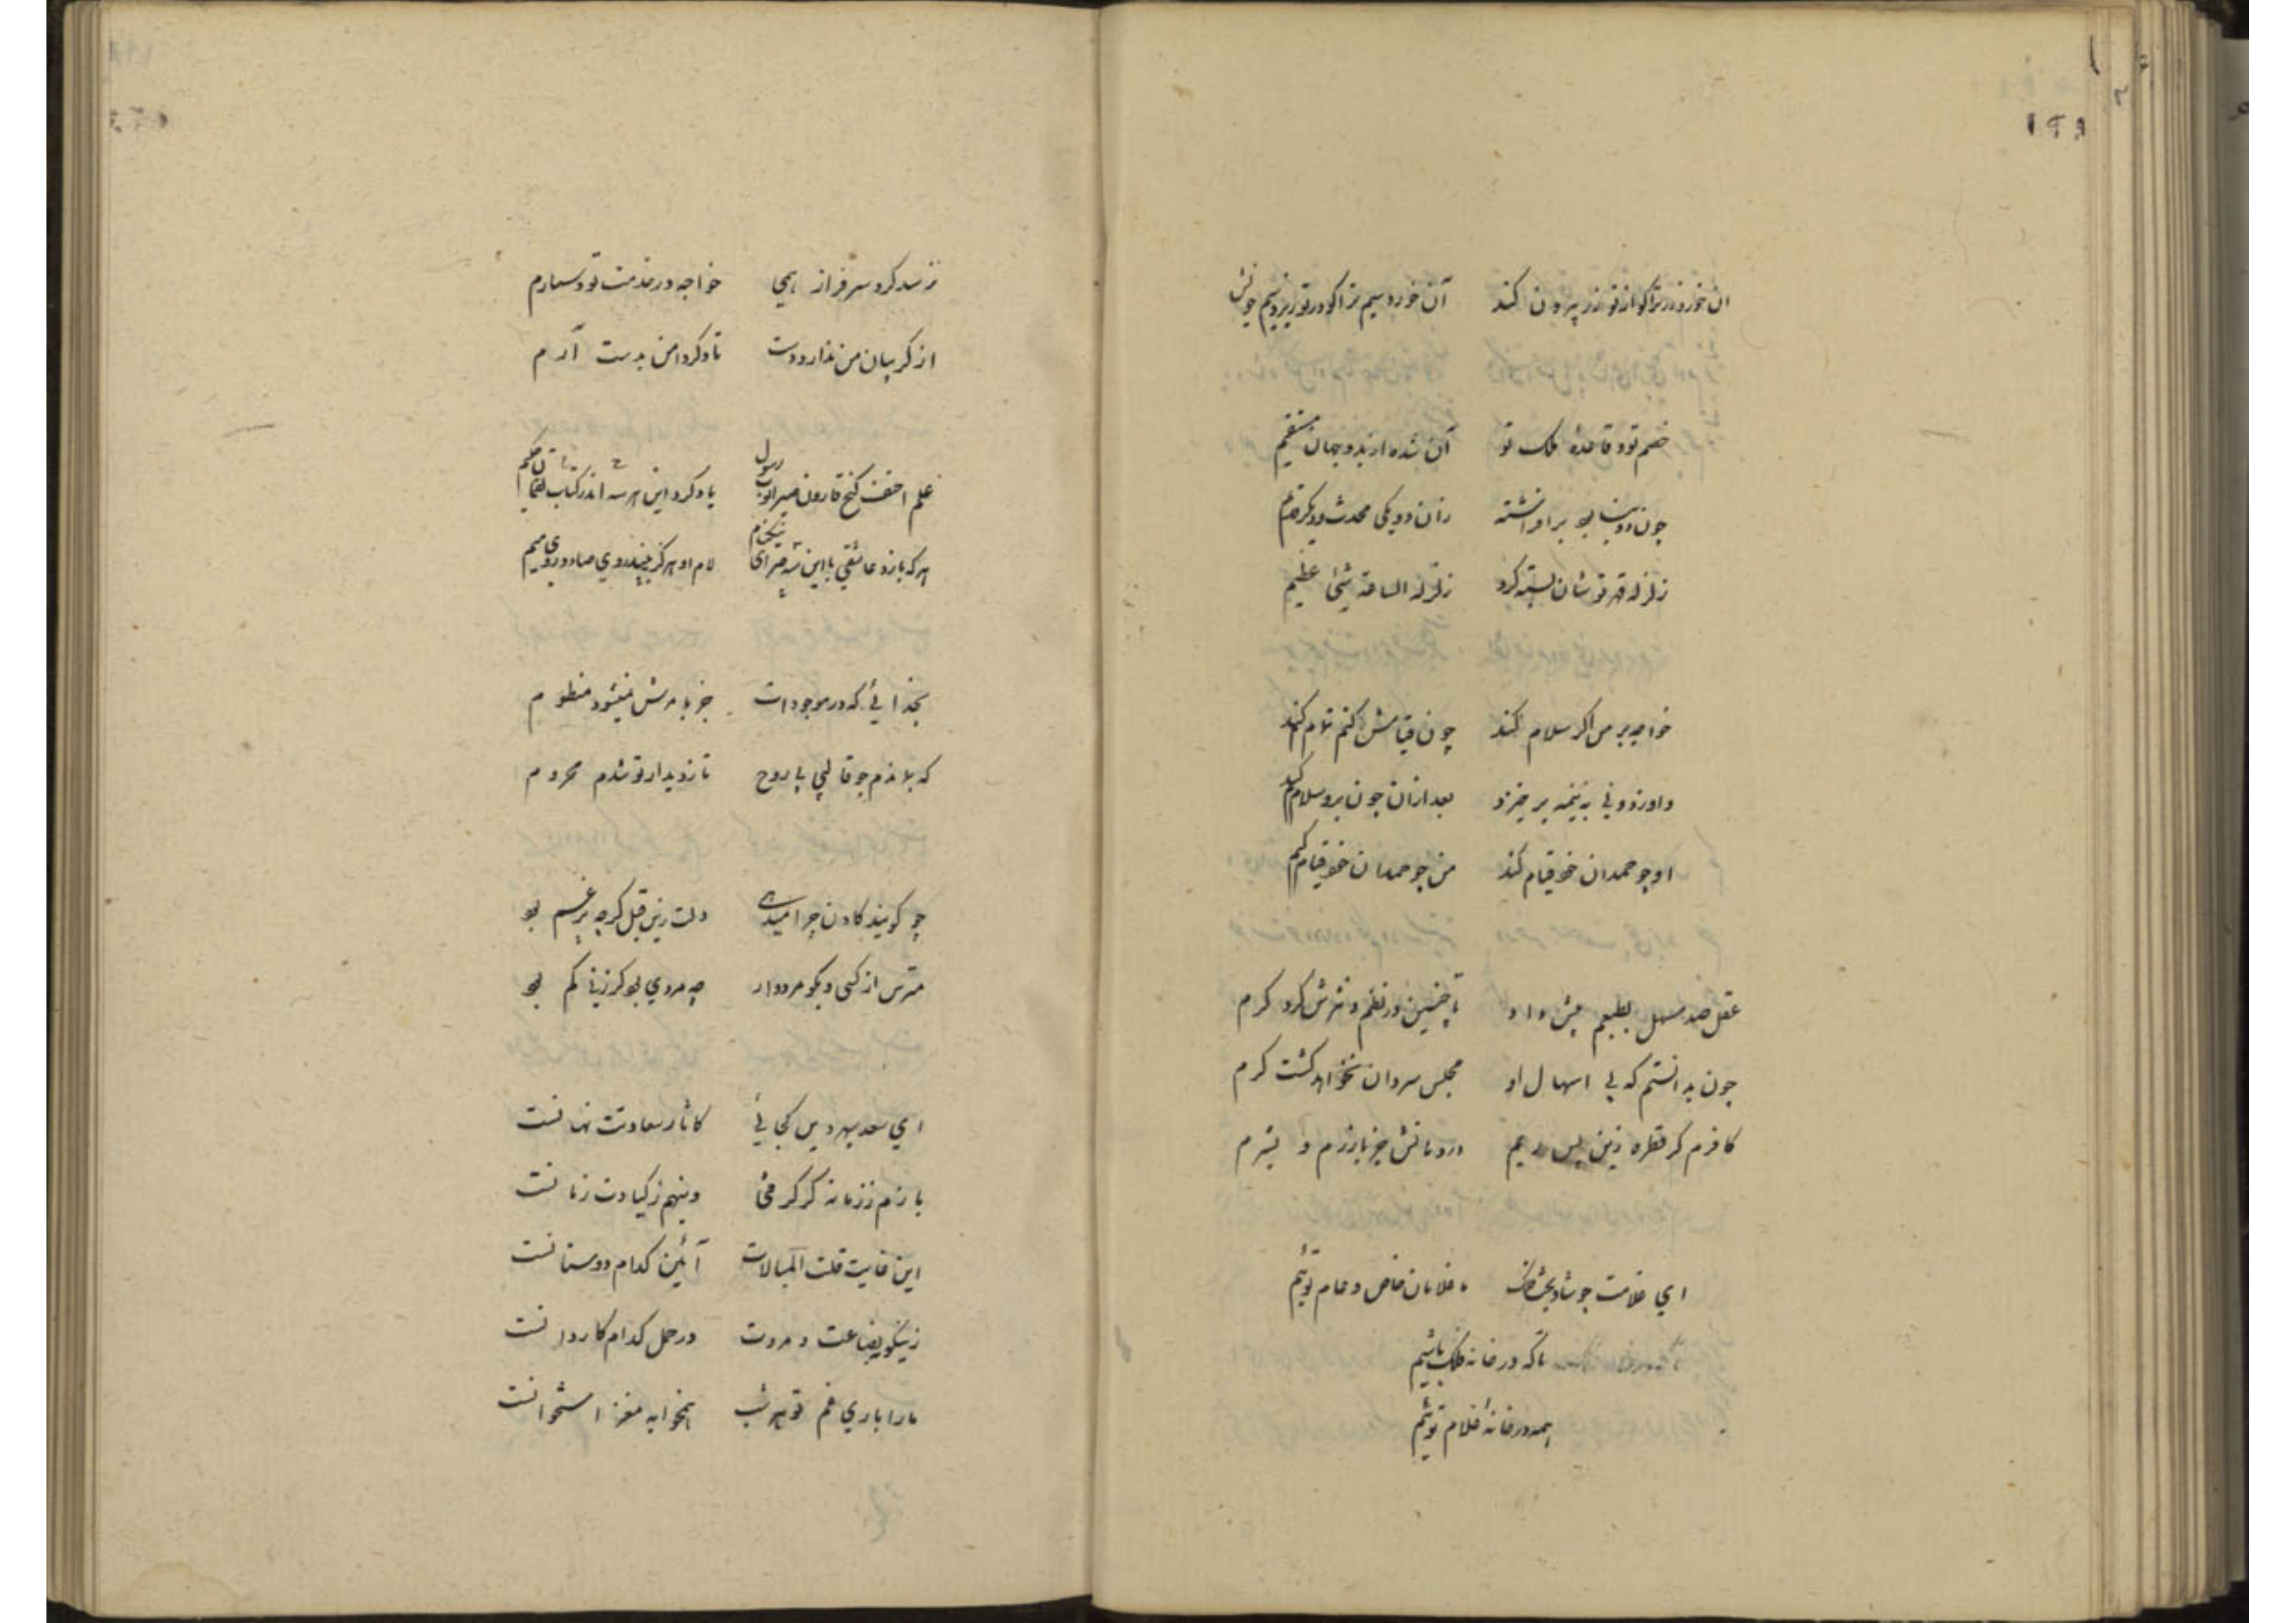 ۱۹۸
ان خورد زر ترا کو از تو زر بیرون کند آن خورد سیم ترا کو در تو ریزد سیم خویش
خصم تو و قاعده ملک تو آن شده از بند و جهان مستقیم
چون دو بنا بود برافراشته زان دو یکی محدث و دیگر قدیم
زلزله قهر تو شان پست کرد زلزلة الساعة شیئ عظیم
خواجه بر من اگر سلام کند چون قیامش کنم تمام کند
بعد از ان چون برو سلام کنم
او چو حمدان خود قیام کند من چو حمدان خود قیام کنم
عقل صد مسهل بطبعم بیش داد تا چنین در نظم و نثرش کرد کرم
چون بدانستم که بی اسهال او مجلس سردان نخواهد کشت کرم
کافرم کر قطره زین پس دهم در دهانش جز بازرم و بشرم
ای غلامت چو شاد بخت ملک ما غلامان خاص و عام توئیم
تا که در خانه ملک باشیم
همه در خانه غلام توئیم
نرسد کرد سرفراز همی خواجه در خدمت تو دستارم
از کریبان من ندارد دست تا دکر دامن بدست آرم
علم احنف کنج قارون صبر ایوب رسول یاد کرد این هر سه اندر کتاب
هرکه بازد عاشقی با این سه چیز ای نیکنام لام او هرکز نبیند روی صاد و روی میم
بخدائی که در موجودات جز بامرش نمیشود منظوم
که بلا ندم چو قالبی بی روح تا ز دیدار تو شدم محروم
چو کویند کادن چرا میدهی دلت زین قبل کرچه پر غم بود
مترس از کسی و بکو مردوار چه مردی بود کز زنی کم بود
ای سعد سپهر دین کجائی کاثار سعادتت نهانست
بازم ز زمانه کم کرفتی وینهم ز کیادت زمانست
این غایت قلت المبالات آئین کدام دوستانست
زینکونه بضاعت مروت در حمل کدام کاروانست
مارا باری غم تو هر شب همخوابه مغز استخوانست